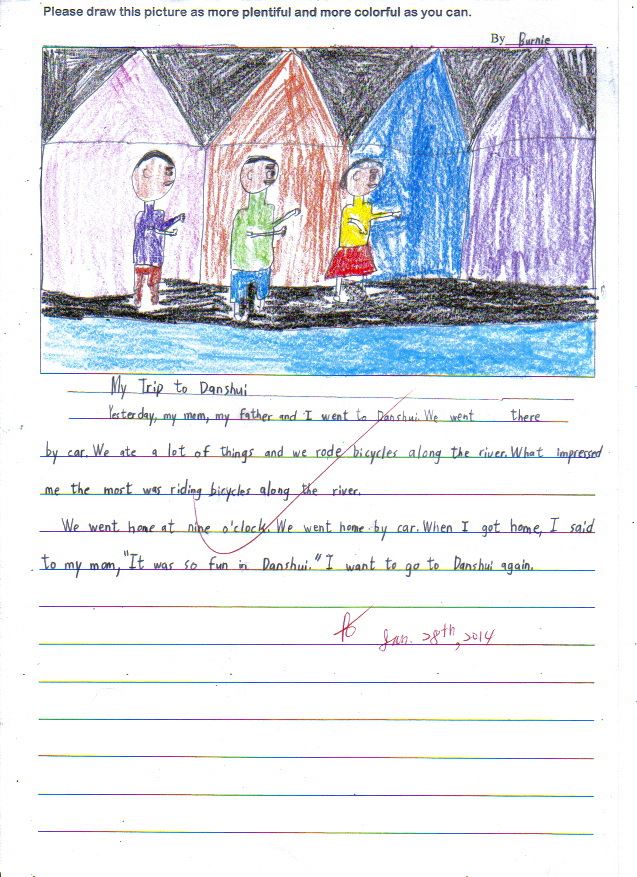 Please draw this picture as more plentiful and more colorful as you can.
By Burnie
My Trip to Danshui
Yesterday, my mom, my father and I went to Danshui. We went there
by car. We ate a lot of things and we rode bicycles along the river. What impressed
me the most was riding bicycles along the river.
We went home at nine o'clock. We went home by car. When I got home, I said
to my mom, "It was so fun in Danshui." I want to go to Danshui again.
Jan. 28th, 2014